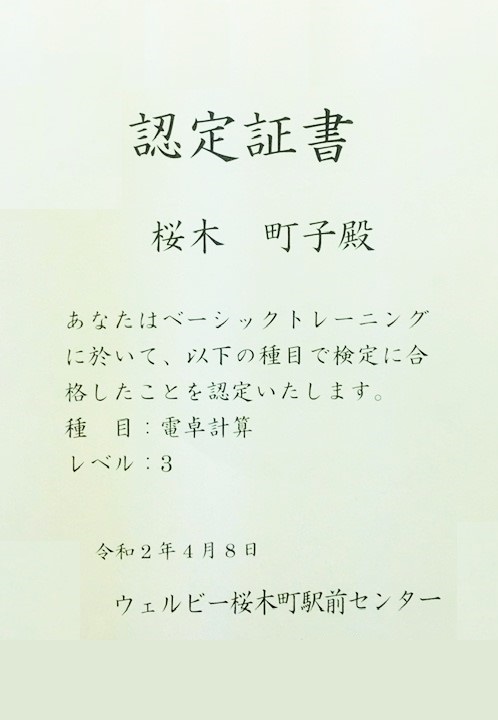 認定証書
桜木　町子殿
あなたはベーシックトレーニング
に於いて、以下の種目で検定に合
格したことを認定いたします。
種　目：電卓計算
レベル：3
令和２年４月８日
ウェルビー桜木町駅前センター